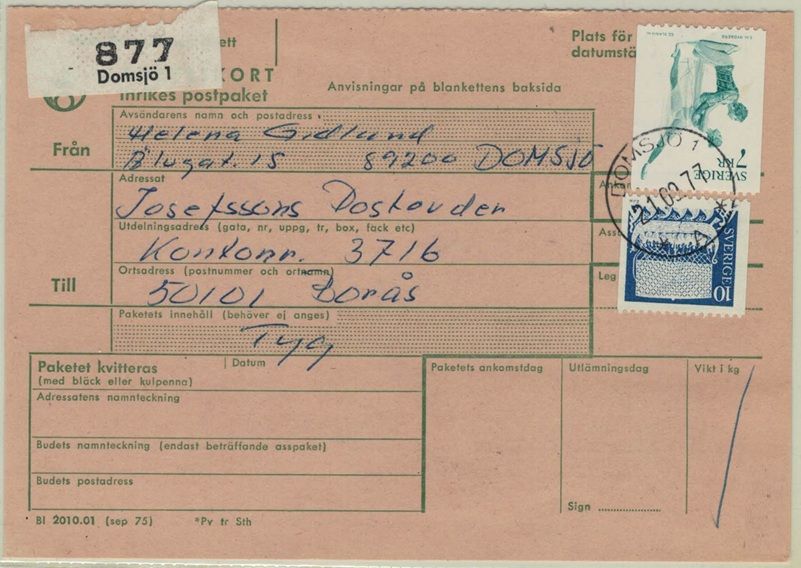 877
Domsjö 1
ett
KORT
Inrikes postpaket
Anvisningar på blankettens baksida
Plats för
datumstä
Från
Avsändarens namn och postadress
Helena Gidlund
Älvgat. 15 89200 DOMSJÖ
Till
Adressat
Josefssons Postorder
Utdelningsadress (gata, nr, uppg, tr, box, fack etc)
Kontonr. 3716
Ortsadress (postnummer och ortnamn)
50101 Borås
Paketets innehåll (behöver ej anges)
Tyg
Ankom
Ass
Leg
SVERIGE
7 KR
DOMSJÖ 1
21.09.77
* A *
SVERIGE
10
Paketet kvitteras
(med bläck eller kulpenna)
Datum
Adressatens namnteckning
Budets namnteckning (endast beträffande asspaket)
Budets postadress
Paketets ankomstdag
Utlämningsdag
Vikt i kg
Sign
Bl 2010.01 (sep 75) *Pv tr Sth